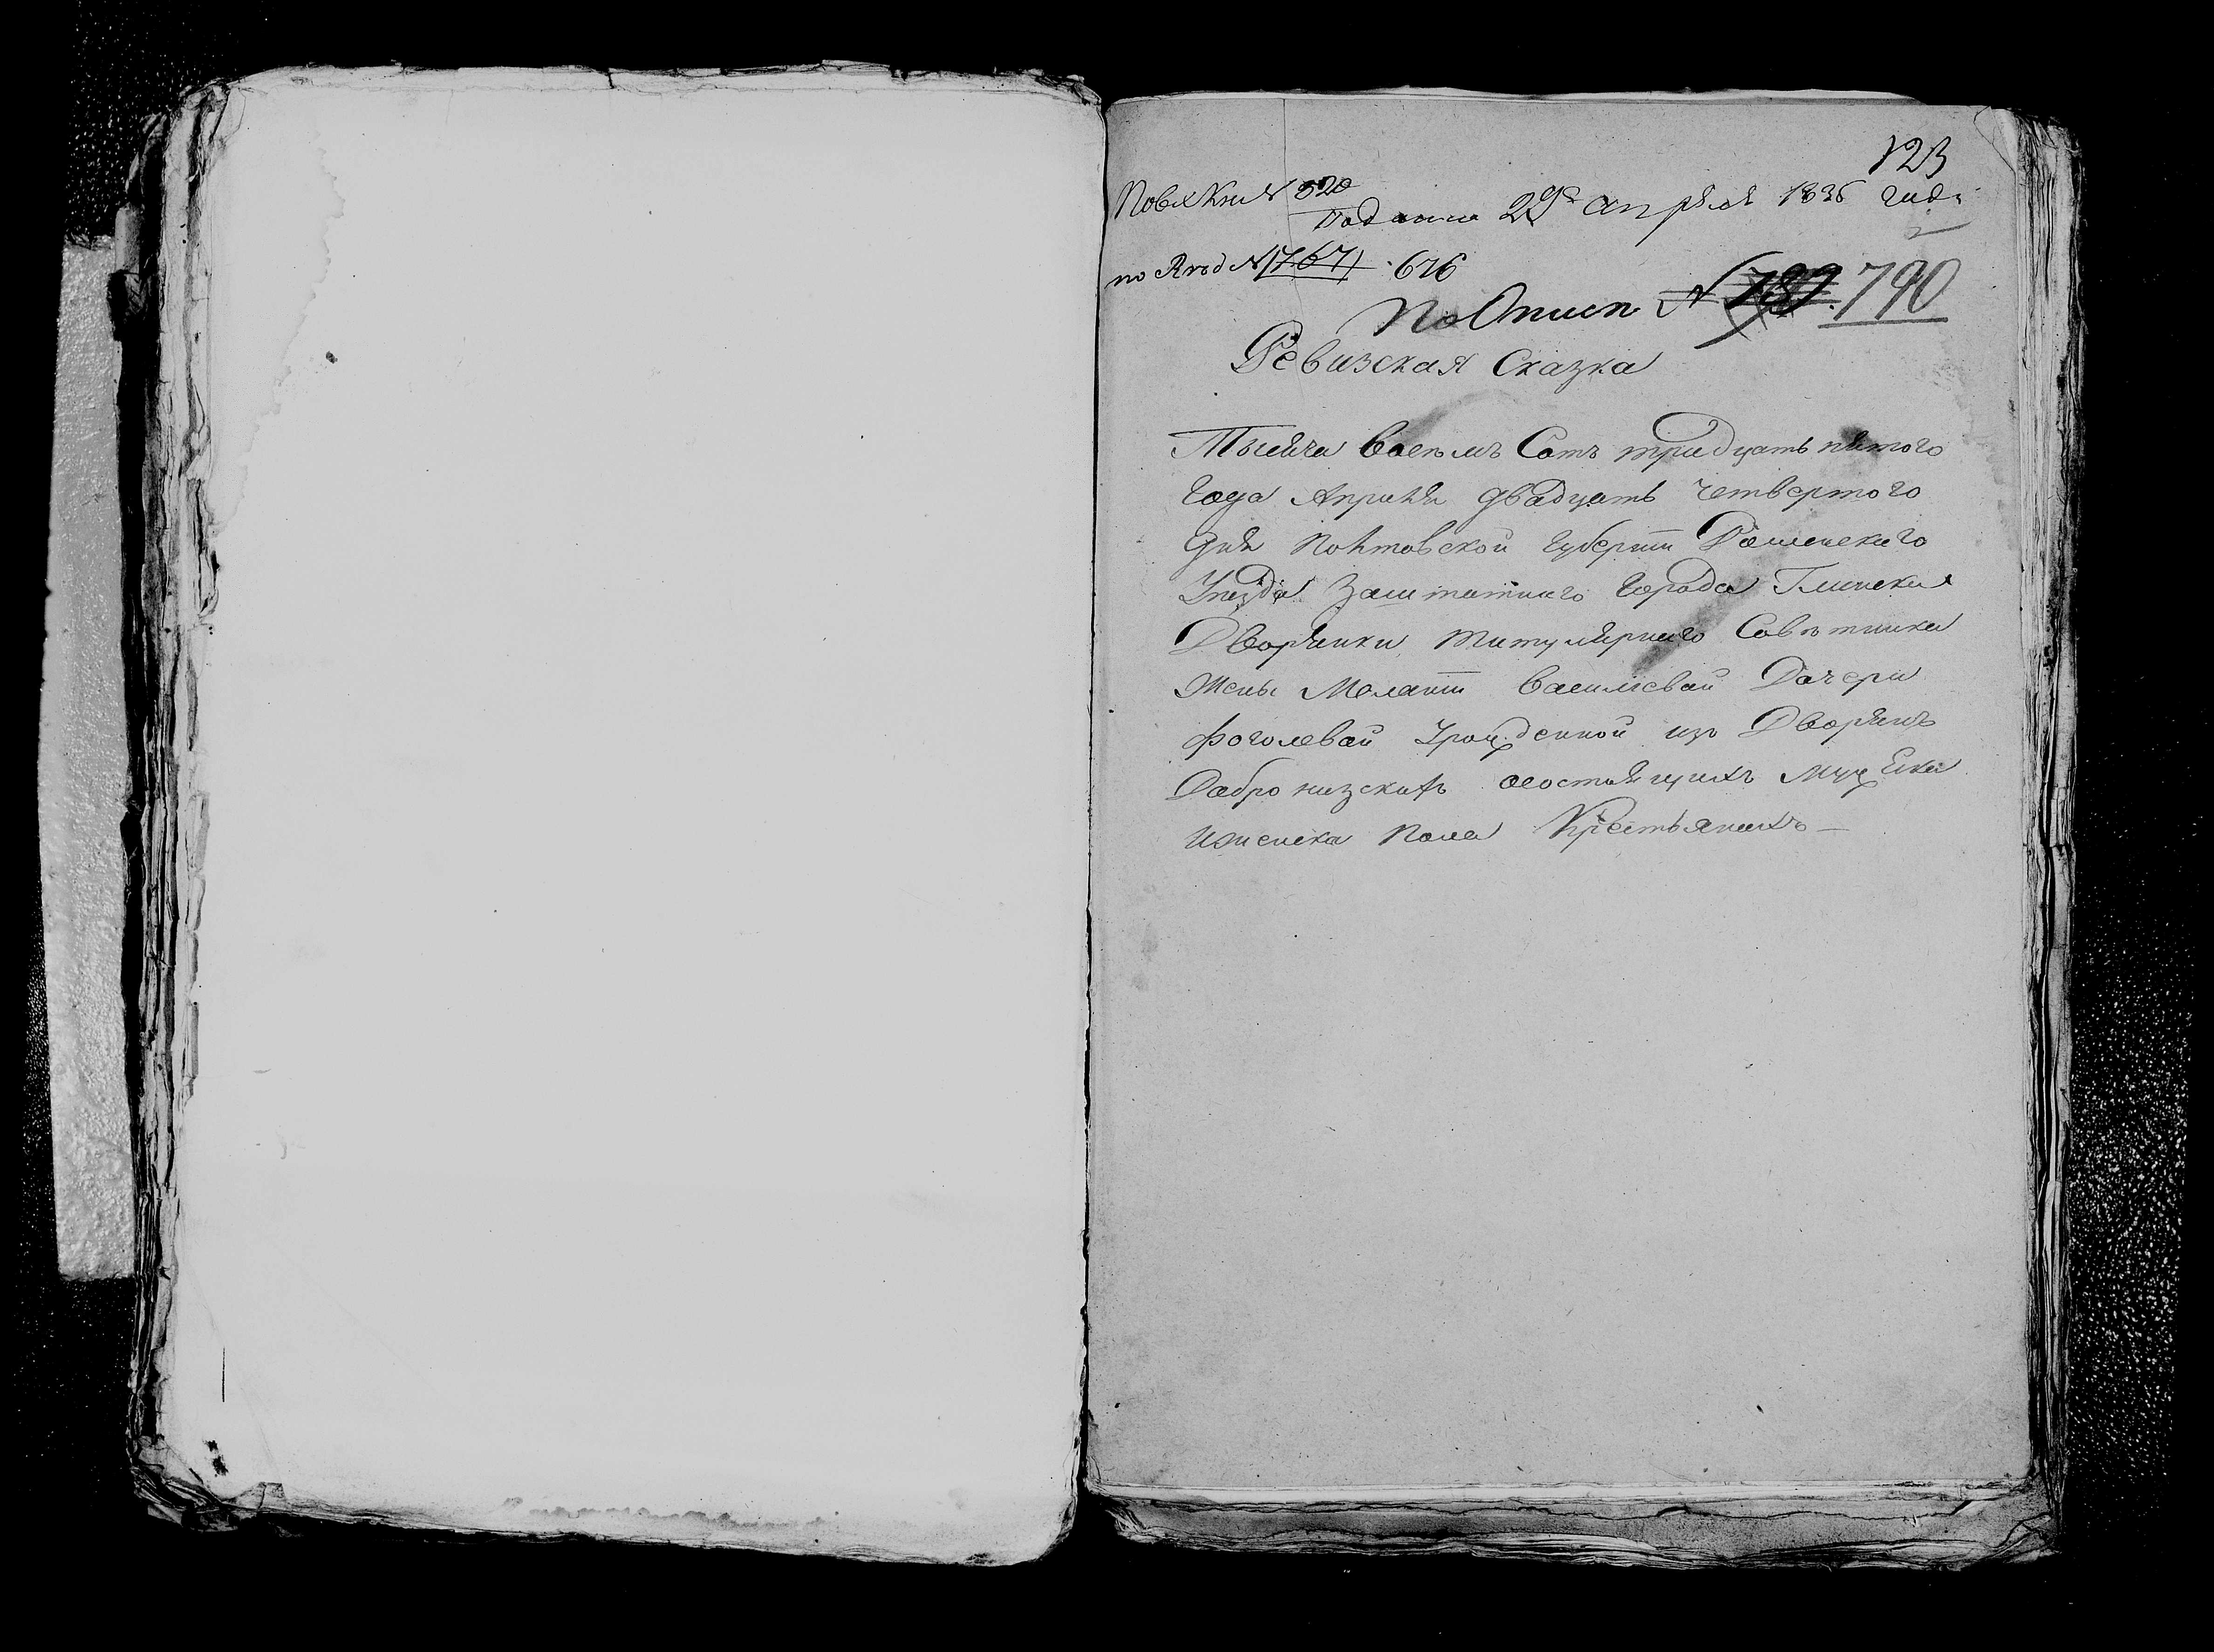 123
Подана 29го апреля 1835 года
№ 520
№ 767 676
По Описи № 789. 790
Ревизская Сказка
Тысяча восемъ Сотъ тридцать пятого
года Апреля двадцать четвертого
дня Полтавской губернии Роменского
Уезда Заштатного города Глинска
Дворянки титулярного Советника
жены Мелании Василиевой Дочери
Урожденной изъ Дворянъ
состоящихъ Мужеска
и женска пола Крестьянахъ —